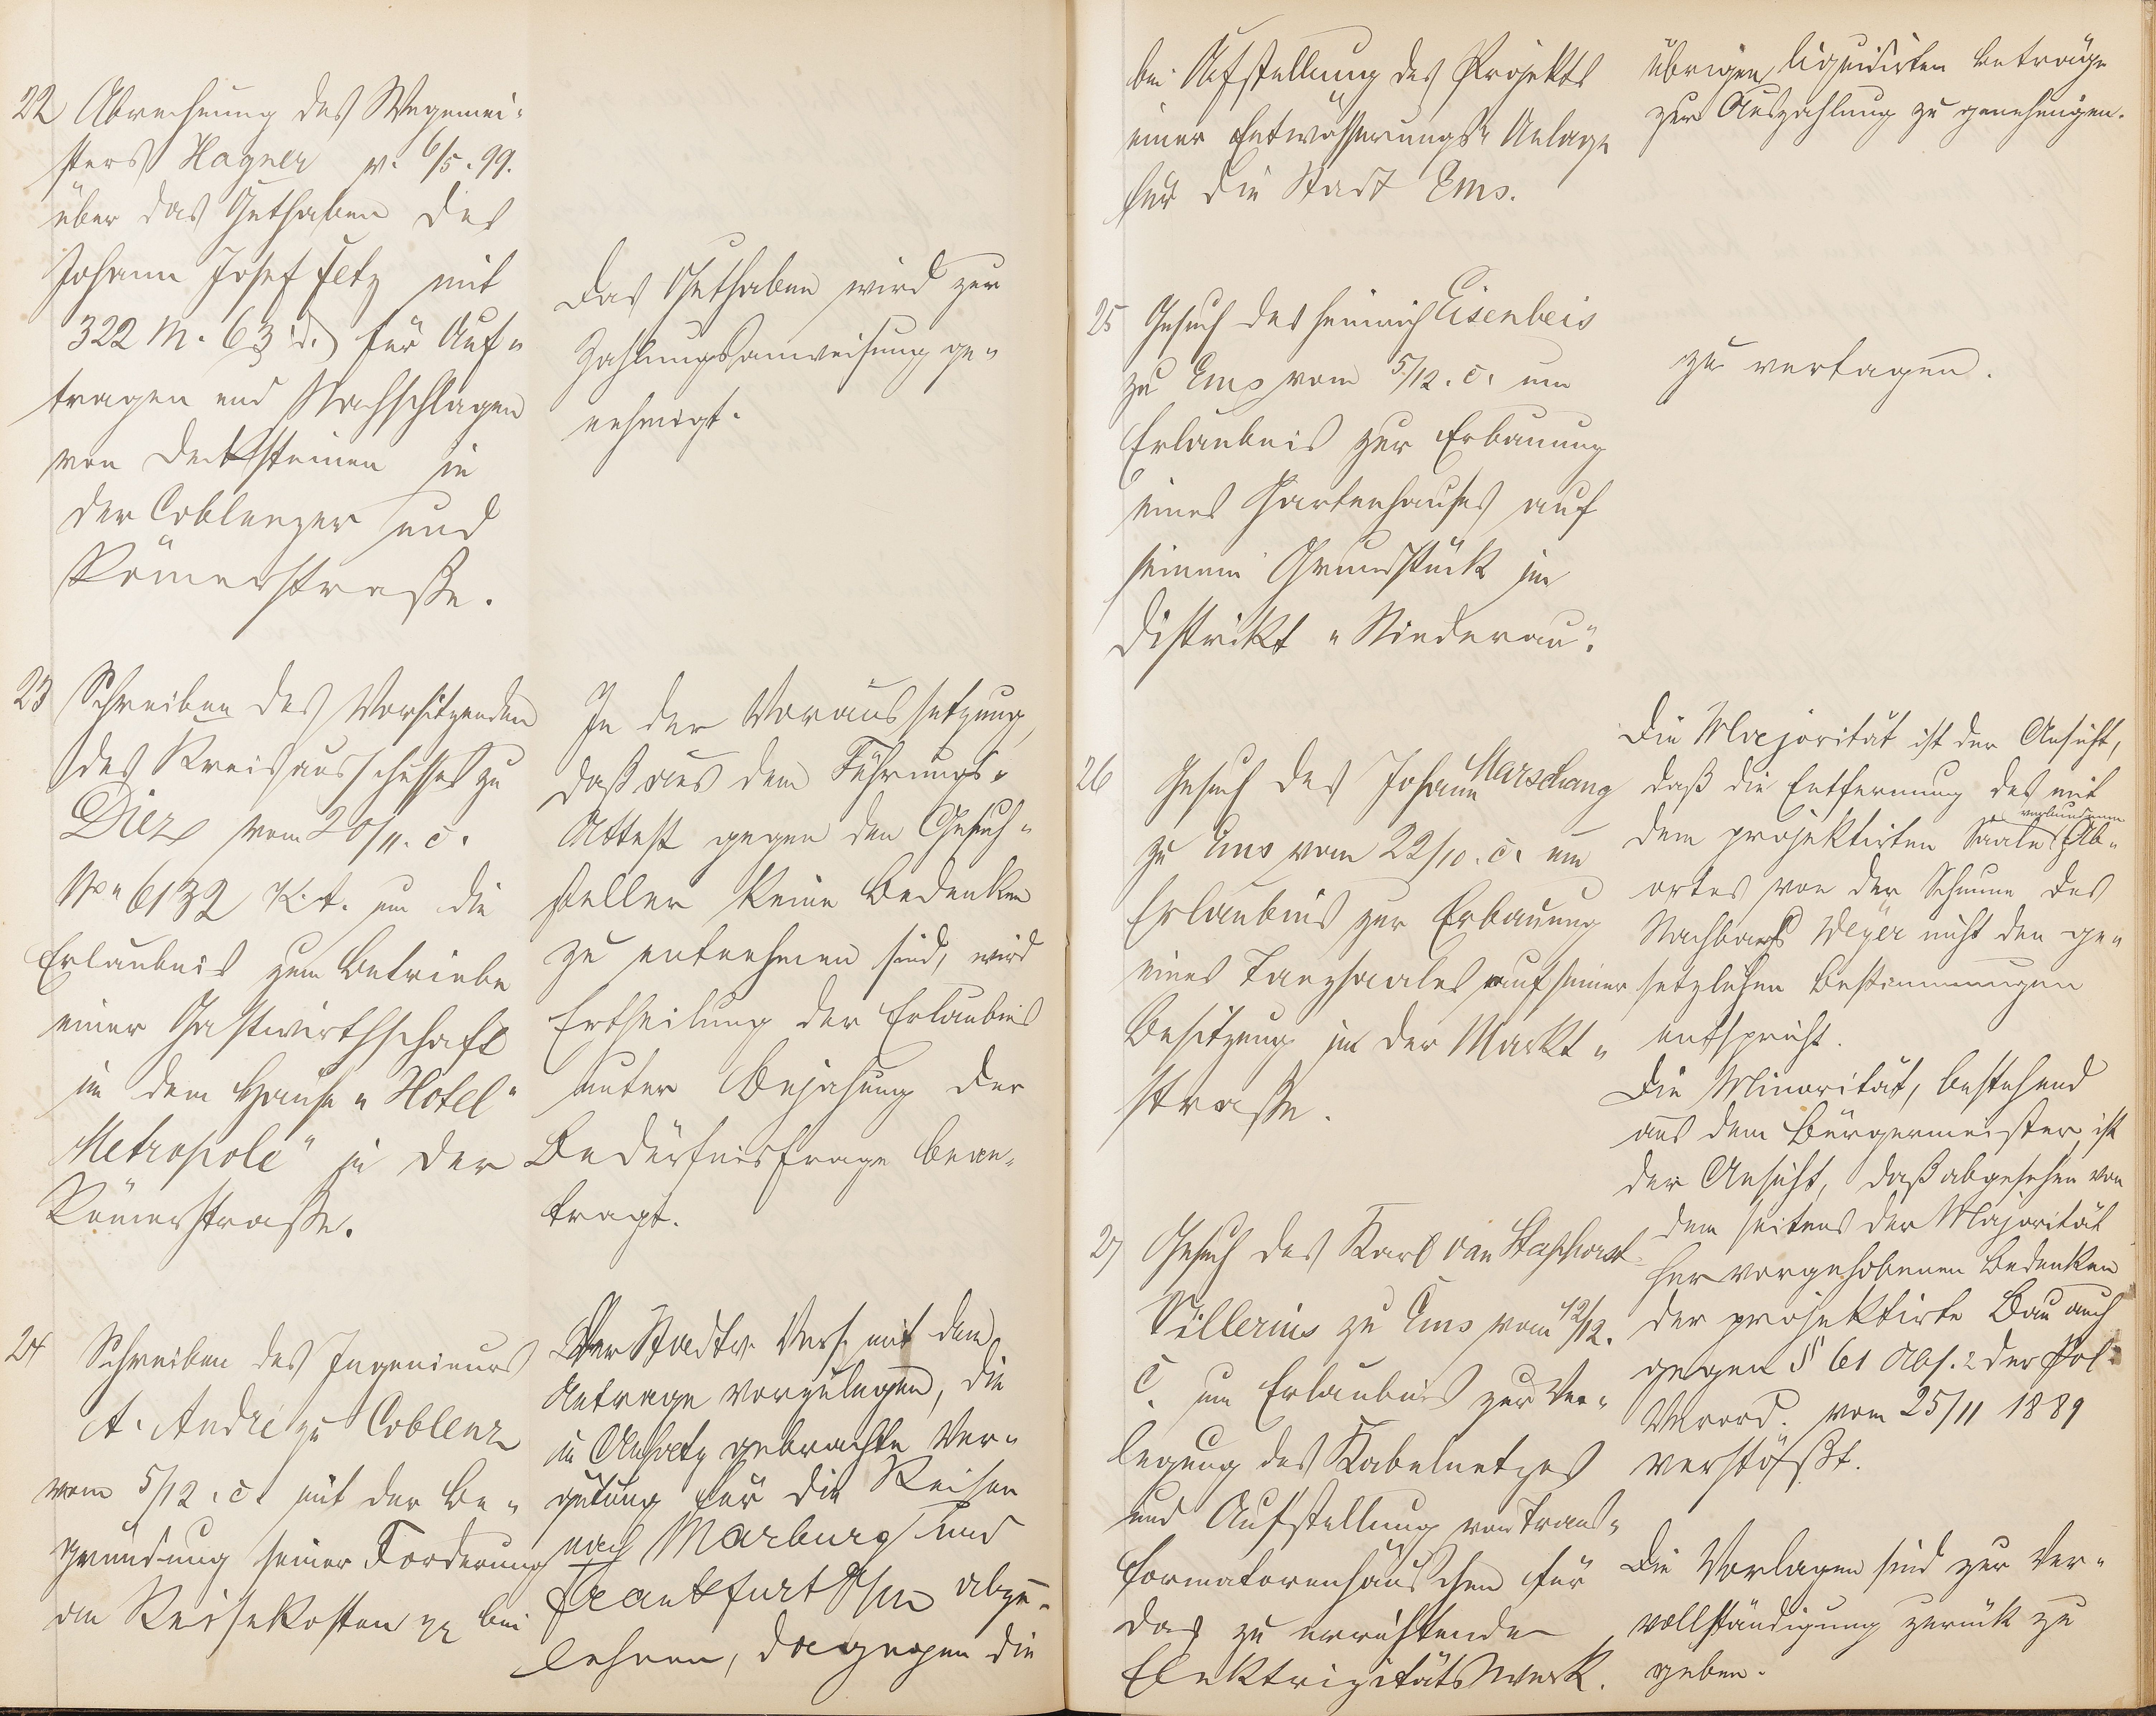 22 Abrechnung des Wegemei-
sters Hagner v. 6/5. 99.
über das Guthaben des
Johann Josef Fetz mit
322 M. 63 d. für Auf-
tragen und Nachschlagen
von Decksteinen in
der Coblenzer und
Römerstraße.
Das Guthaben wird zur
Zahlungsanweisung ge-
nehmigt.
23 Schreiben des Vorsitzenden
des Kreisausschusses zu
Diez vom 20/11. c.
No 6132 K.A. um die
Erlaubnis zum Betriebe
einer Gastwirthschaft
in dem Hause „Hotel
Metropole" in der
Römerstraße.
In der Voraussetzung,
daß aus dem Führungs-
Attest gegen den Gesuch-
steller keine Bedenken
zu entnehmen sind, wird
Ertheilung der Erlaubnis
unter Bejahung der
Bedürfnisfrage bean-
tragt.
24 Schreiben des Ingenieurs
A. André zu Coblenz
vom 5/12. c. mit der Be-
gründung seiner Forderung
an Reisekosten pp bei
Der Stadtv. Vers. mit dem
Antrage vorzulegen, die
in Ansatz gebrachte Ver-
gütung für die Reisen
nach Marburg und
Frankfurt a/m abzu-
lehnen, dagegen die
bei Aufstellung des Projekts
einer Entwässerungs-Anlage
für die Stadt Ems.
übrigen liquidirten Beträge
zur Auszahlung zu genehmigen.
25 Gesuch des Heinrich Eisenbeis
zu Ems vom 5/12. c. um
Erlaubnis zur Erbauung
eines Gartenhauses auf
seinem Grundstück im
Distrikt „Niederau".
zu vertagen.
26 Gesuch des Johann Marschang
zu Ems vom 22/10. c. um
Erlaubnis zur Erbauung
eines Tanzsaales auf seiner
Besitzung in der Markt-
straße.
Die Majorität ist der Ansicht,
daß die Entfernung des mit
dem projektirten Saale verbundenen Ab-
ortes von der Scheune des
Nachbars Weyer nicht den ge-
setzlichen Bestimmungen
entspricht.
Die Minorität, bestehend
aus dem Bürgermeister, ist
der Ansicht, daß abgesehen von
dem seitens der Majorität
hervorgehobenen Bedenken
der projektirte Bau auch
gegen § 61 Abs. 2 der Pol.
Verord. vom 25/11 1889
verstößt.
27 Gesuch des Karl van Staphorst
Villerius zu Ems vom 12/12.
c. um Erlaubnis zur Ver-
legung des Kabelnetzes
und Aufstellung von Trans-
formatorenhäuschen für
das zu errichtende
Elektrizitätswerk.
Die Vorlagen sind zur Ver-
vollständigung zurück zu
geben.